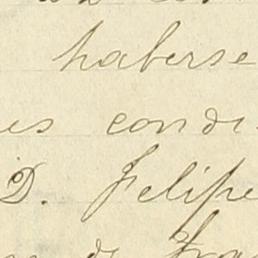 haberse
es condi
D. Felipe